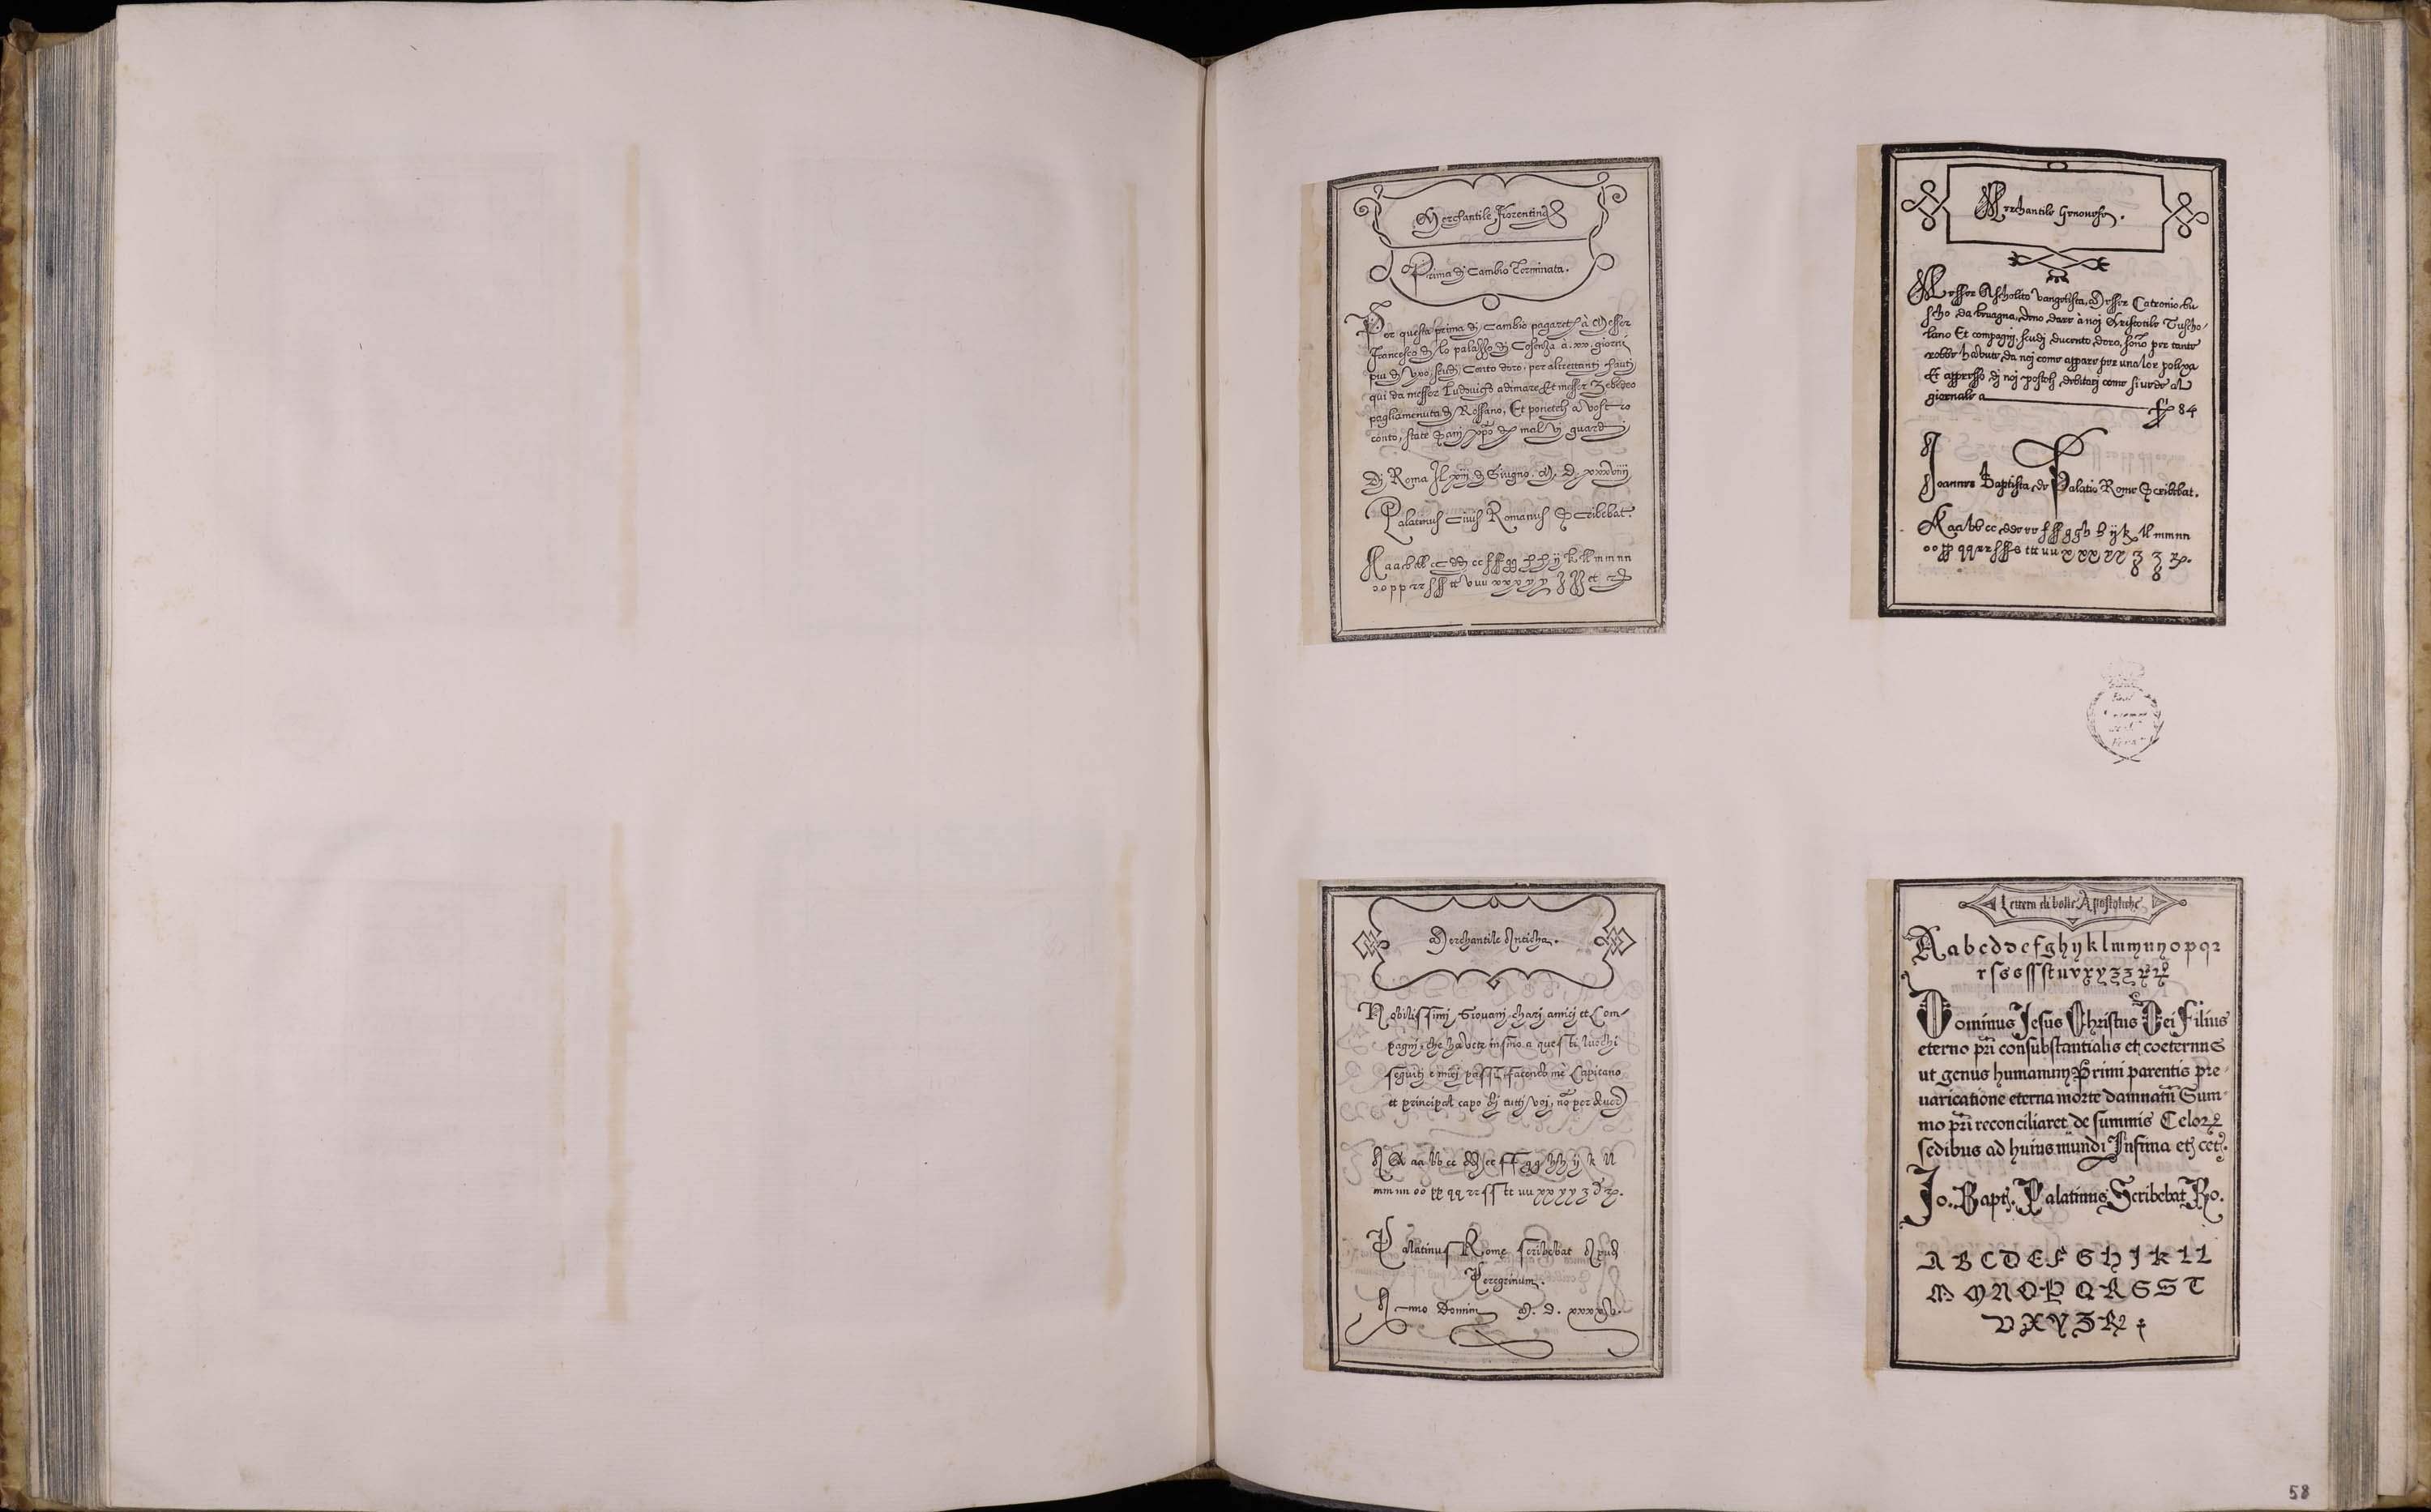 Merchantile Fiorentina
Prima di Cambio Terminata.
Per questa prima di Cambio pagarete à Messer
Francesco di lo palazzo di Cosenza à .xx. giorni
piu di Vso, scudi Cento doro, per altrettanti hauti
qui da messer Ludovico adimare Et messer Zebedeo
pagliamenuta di Rossano, Et ponetelj a vostro
conto, state sani xpo di mal vi guardi
Di Roma Il xiij di Giugno. M. D. xxxviiij
Palatinus Ciuis Romanus Scribebat.
A a a b bb cc dd ee ff gg h h ij k ll m m n n
o o p p rr ss tt v uu x x x y y z et
Merchantile Genouese.
Messer Ascholito Vangelista, Messer Catronio bu
scho da beuagna, deno dare à noj Aristotile Tuscho-
lano Et compagnj, scudj ducento doro, sono per tante
robbe habute da noj come appare per una lor poliza
Et appresso dj noj postosj debitorj come si uede al
giornale a f. 84
Joannes Baptista de Palatio Rome Scribebat.
A aa bb cc dd ee ff gg h h ij k ll mm nn
oo pp qq rr ss s tt uu x xx yy z z
Merchantile Anticha.
Nobilissimj Giouanj charj amicj et Com-
pagnj, che havete insino a questi luochi
seguiti e miej passi, facendo me Capitano
et principal capo dj tuttj voj, nõ per
A A aa bb cc dd ee ff gg hh ij k ll
mm nn oo pp qq rr ss tt uu xx yy z
Palatinus Rome scribebat Apud
Peregrinum.
Anno Domini M. D. xxxx
Lettera di bolle Apostoliche
A a b c d d e f g h y k l m m n n o p q r
r s s s ss st u v x y z z
Dominus Jesus Christus Dei Filius
eterno pri consubstantialis et coeternus
ut genus humanum Primi parentis pre-
uaricatione eterna morte damnatũ Sum-
mo pri reconciliaret de summis Celorꝝ
sedibus ad huius mundi Infima et cet.
Jo. Bapt. Palatinus Scribebat Ro.
A B C D E F G H I K L L
M M N O P Q R S S T
V X Y Z
58